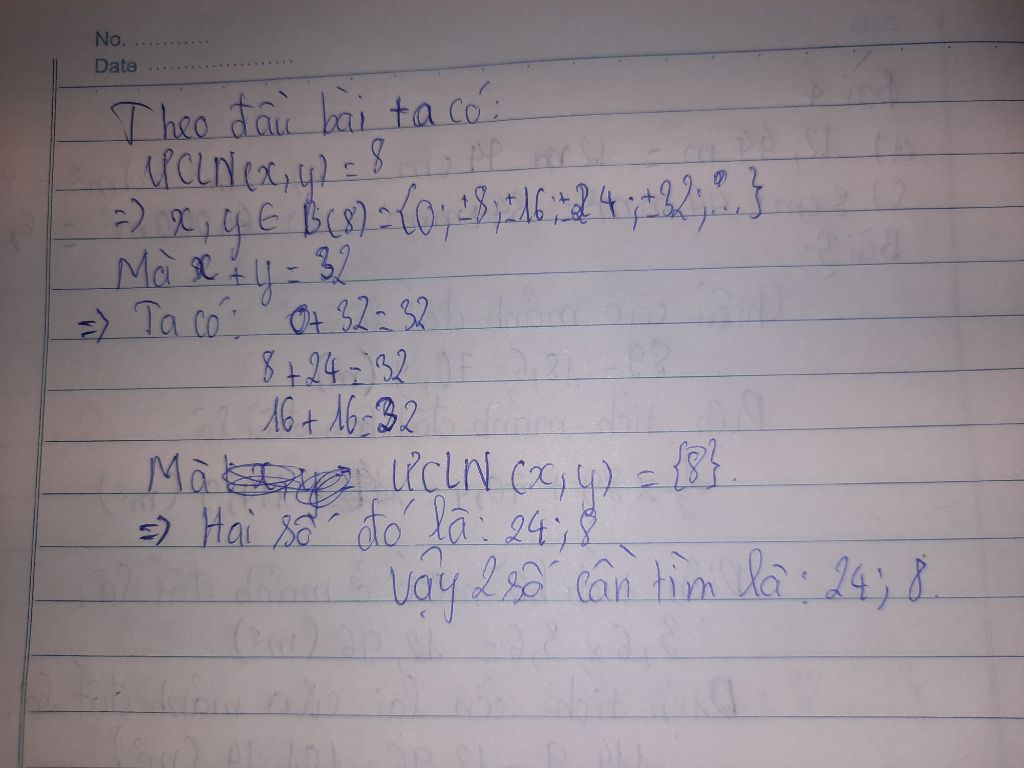 No. ...........
Date ......................
Theo đầu bài ta có:
ƯCLN(x,y) = 8
=> x, y ∈ B(8) = {0; ±8; ±16; ±24; ±32; ...}
Mà x + y = 32
=> Ta có: 0+ 32 = 32
8 + 24 = 32
16 + 16 = 32
Mà ƯCLN (x,y) = {8}.
=> Hai số đó là: 24; 8
Vậy 2 số cần tìm là: 24; 8.